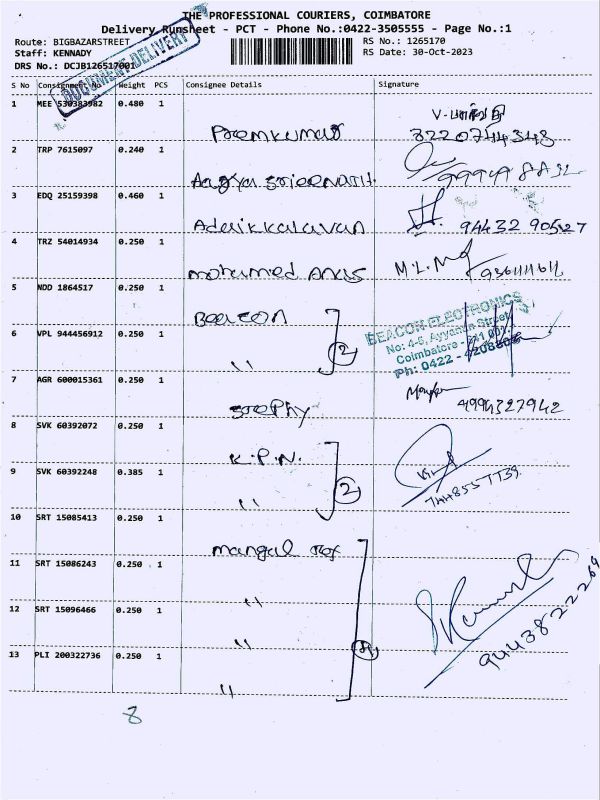 THE PROFESSIONAL COURIERS, COIMBATORE
Delivery Runsheet - PCT - Phone No.:0422-3505555 - Page No.:1
Route: BIGBAZARSTREET
RS No.: 1265170
Staff: KENNADY
RS Date: 30-Oct-2023
DRS No.: DCJB126517001
DOCUMENT DELIVERY
S No Consignment No Weight PCS Consignee Details Signature
1 MEE 530383982 0.480 1
Premkumar
2 TRP 7615097 0.240 1
3 EDQ 25159398 0.460 1
Adaikkalavan 94432 90527
4 TRZ 54014934 0.250 1
mohamed Anas M.L.Md
5 NDD 1864517 0.250 1
Beacon
BEACON ELECTRONICS
No: 4-6, Ayyannan Street
Coimbatore - 641 001
Ph: 0422 -
6 VPL 944456912 0.250 1
" 2
7 AGR 600015361 0.250 1
4994327942
8 SVK 60392072 0.250 1
K.P.N.
9 SVK 60392248 0.385 1
" 2
10 SRT 15085413 0.250 1
mangal
11 SRT 15086243 0.250 1
"
12 SRT 15096466 0.250 1
"
13 PLI 200322736 0.250 1
"
9443822269
8